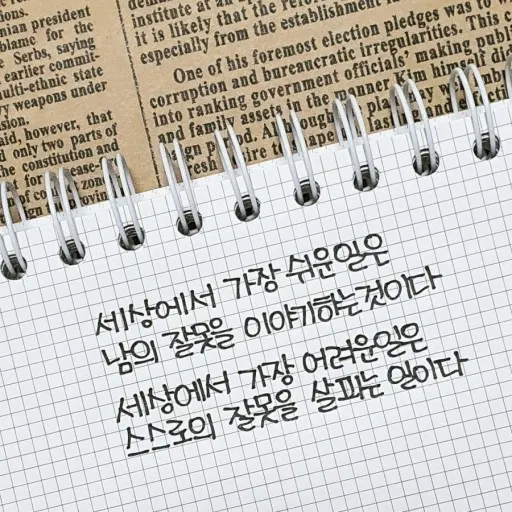 nian president
blame for the
Serbs, saying
earlier commit-
ulti-ethnic state
weapons under
said, however, that
only two parts of
the constitution and
institute at an
it is likely that the
especially from the establishment
One of his foremost election pledges was to
corruption and bureaucratic irregularities. This
into ranking government officials' making
and family assets in the manner Kim himself
세상에서 가장 쉬운일은
남의 잘못을 이야기하는것이다
세상에서 가장 어려운일은
스스로의 잘못을 살피는 일이다